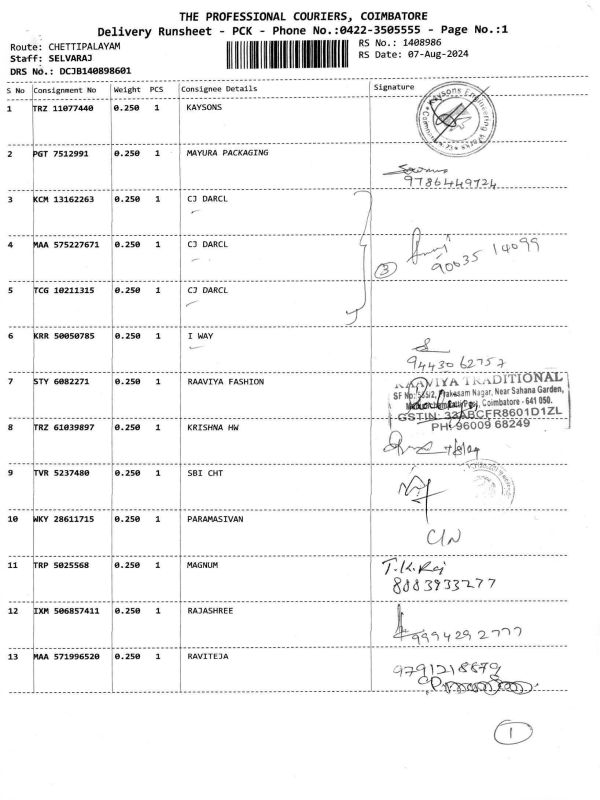 THE PROFESSIONAL COURIERS, COIMBATORE
Delivery Runsheet - PCK - Phone No.:0422-3505555 - Page No.:1
Route: CHETTIPALAYAM
Staff: SELVARAJ
DRS No.: DCJB140898601
RS No.: 1408986
RS Date: 07-Aug-2024
S No Consignment No Weight PCS Consignee Details Signature
1 TRZ 11077440 0.250 1 KAYSONS
Kaysons Engineering
2 PGT 7512991 0.250 1 MAYURA PACKAGING
9786449724
3 KCM 13162263 0.250 1 CJ DARCL
4 MAA 575227671 0.250 1 CJ DARCL
3 90035 14099
5 TCG 10211315 0.250 1 CJ DARCL
6 KRR 50050785 0.250 1 I WAY
9443062757
7 STY 6082271 0.250 1 RAAVIYA FASHION
RAAVIYA TRADITIONAL
Prakasam Nagar, Near Sahana Garden,
Coimbatore - 641 050.
GSTIN: 33ABCFR8601D1ZL
PH: 96009 68249
8 TRZ 61039897 0.250 1 KRISHNA HW
7/8/24
9 TVR 5237480 0.250 1 SBI CHT
10 WKY 28611715 0.250 1 PARAMASIVAN
C/N
11 TRP 5025568 0.250 1 MAGNUM
T.K.Raj
8883933277
12 IXM 506857411 0.250 1 RAJASHREE
9994292777
13 MAA 571996520 0.250 1 RAVITEJA
9791218879
1